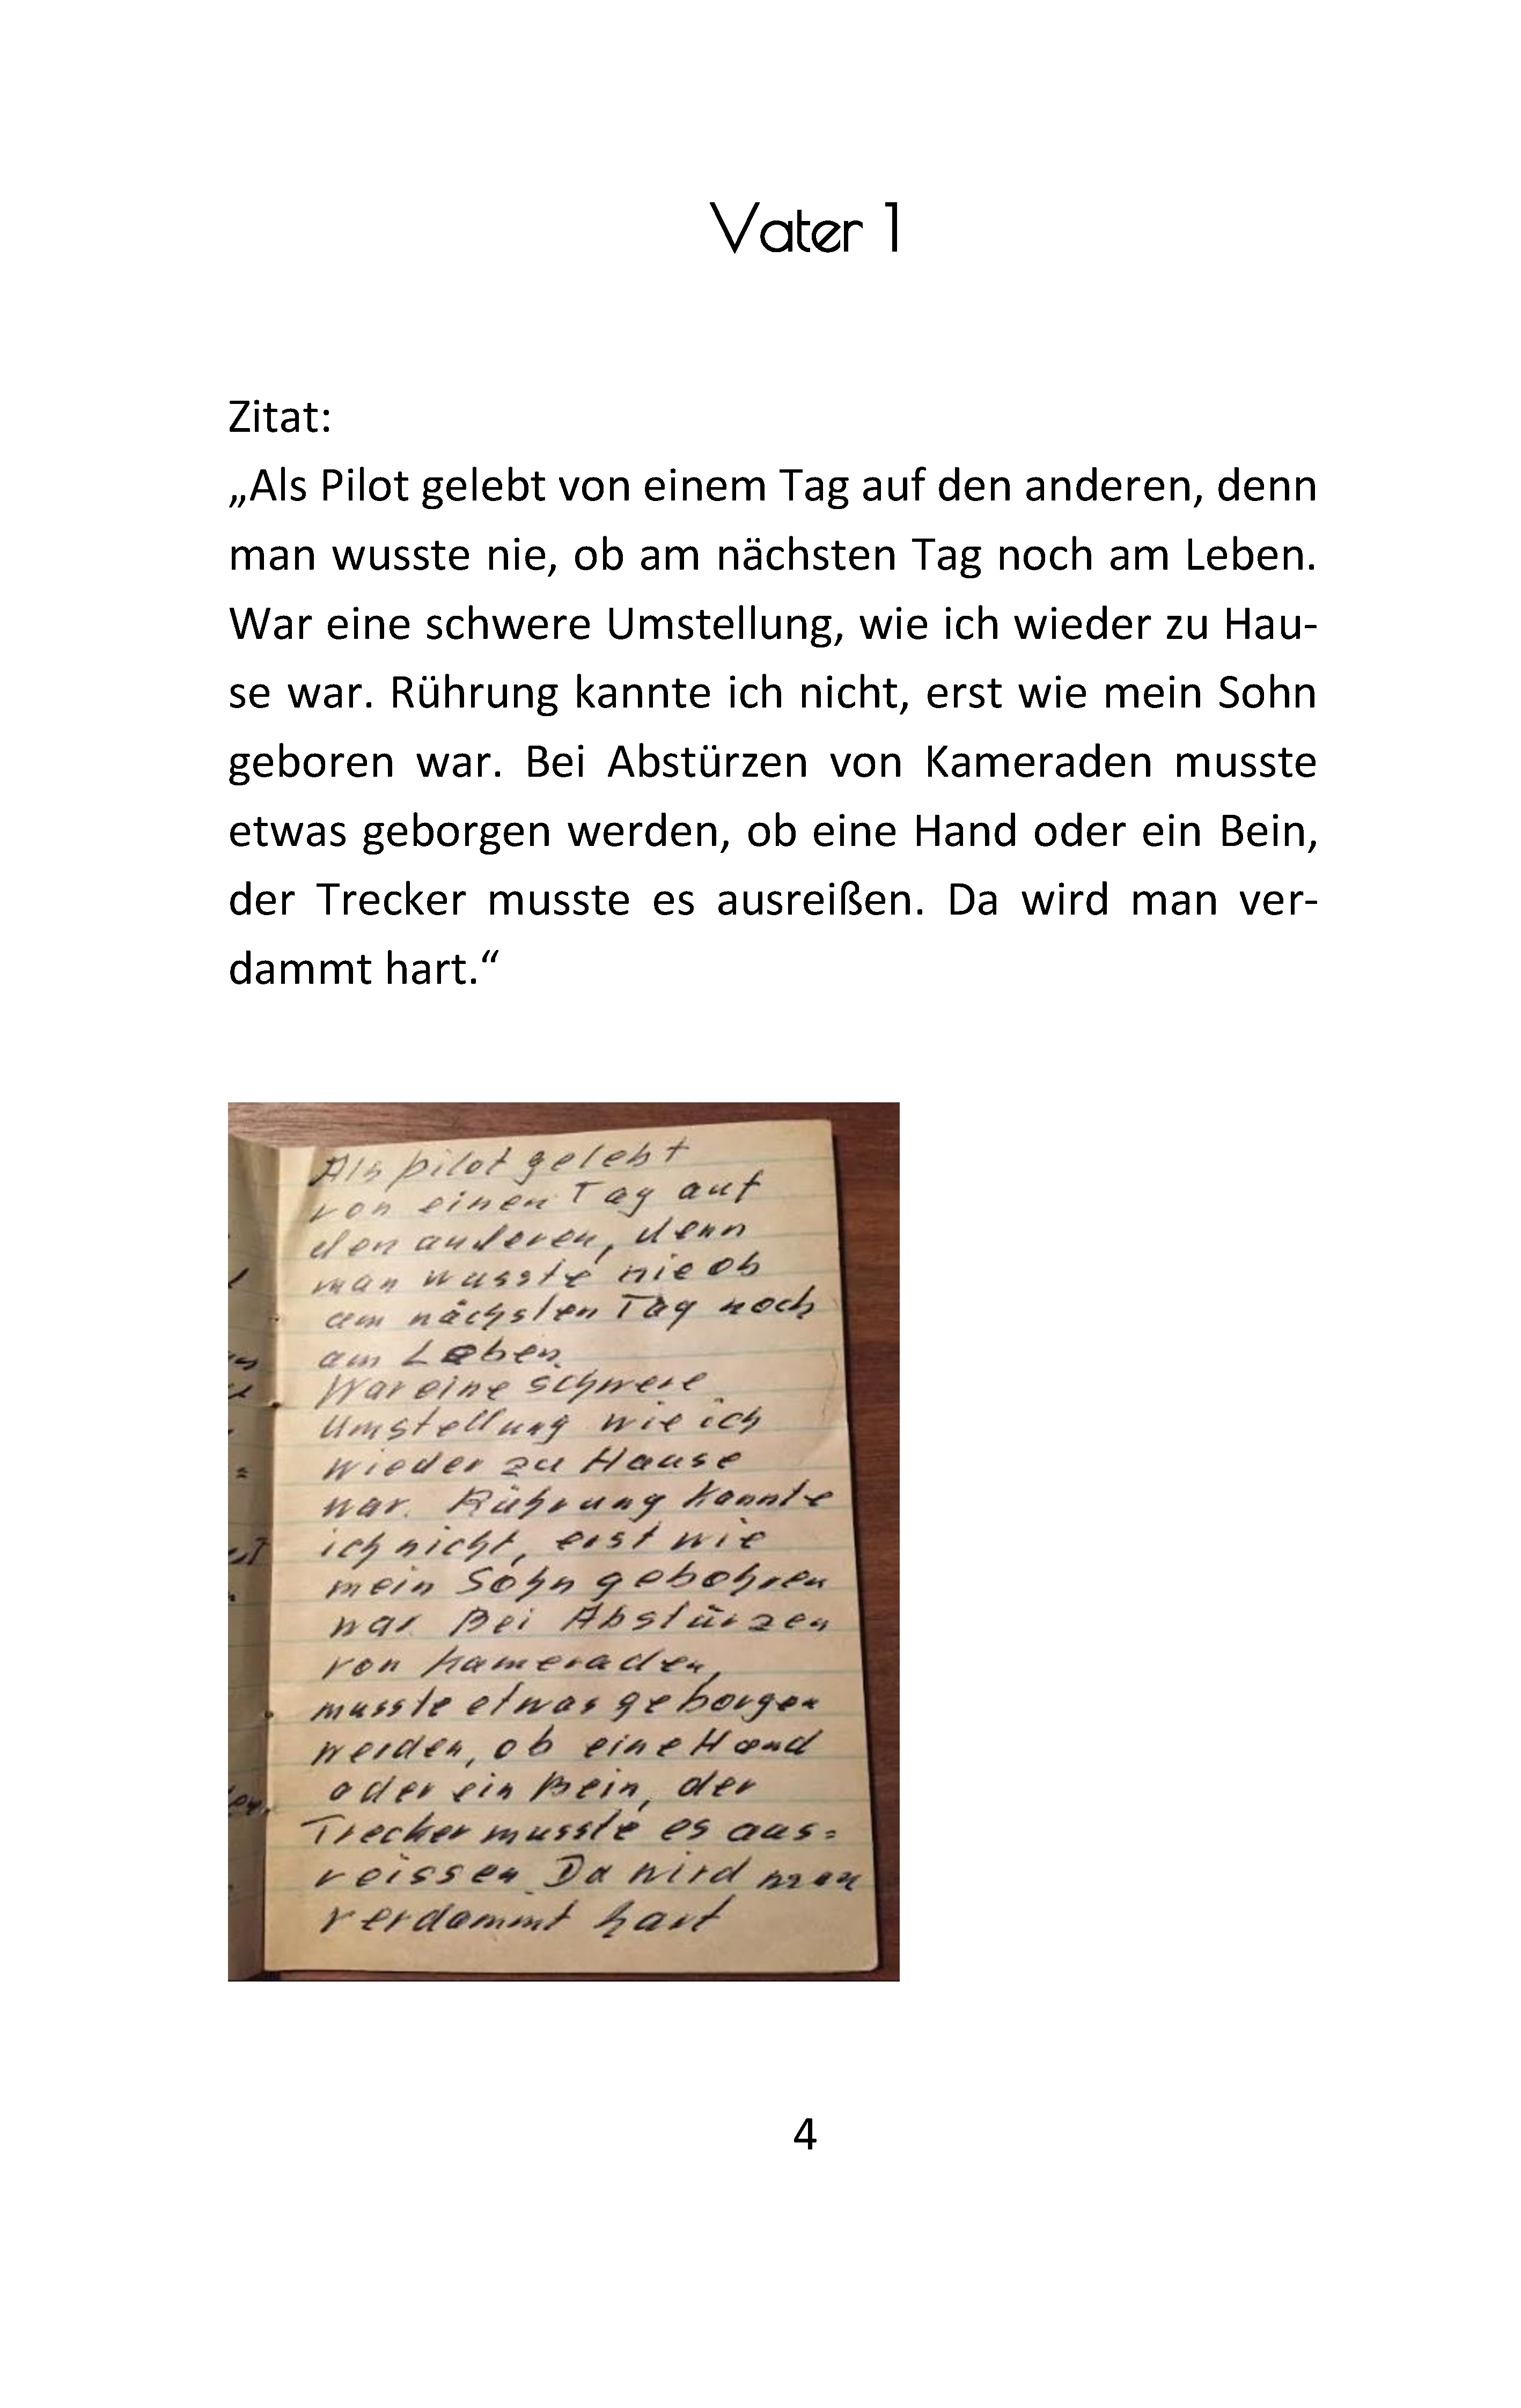 Vater 1
Zitat:
„Als Pilot gelebt von einem Tag auf den anderen, denn
man wusste nie, ob am nächsten Tag noch am Leben.
War eine schwere Umstellung, wie ich wieder zu Hau-
se war. Rührung kannte ich nicht, erst wie mein Sohn
geboren war. Bei Abstürzen von Kameraden musste
etwas geborgen werden, ob eine Hand oder ein Bein,
der Trecker musste es ausreißen. Da wird man ver-
dammt hart.“
Als pilot gelebt
von einen Tag auf
den anderen, denn
man wusste nie ob
am nächsten Tag noch
am Leben.
War eine schwere
Umstellung wie ich
wieder zu Hause
war. Rührung kannte
ich nicht, erst wie
mein Sohn gebohren
war. Bei Abstürzen
von Kameraden,
musste etwas geborgen
werden, ob eine Hand
oder ein Bein, der
Trecker musste es aus=
reissen. Da wird man
verdammt hart
4